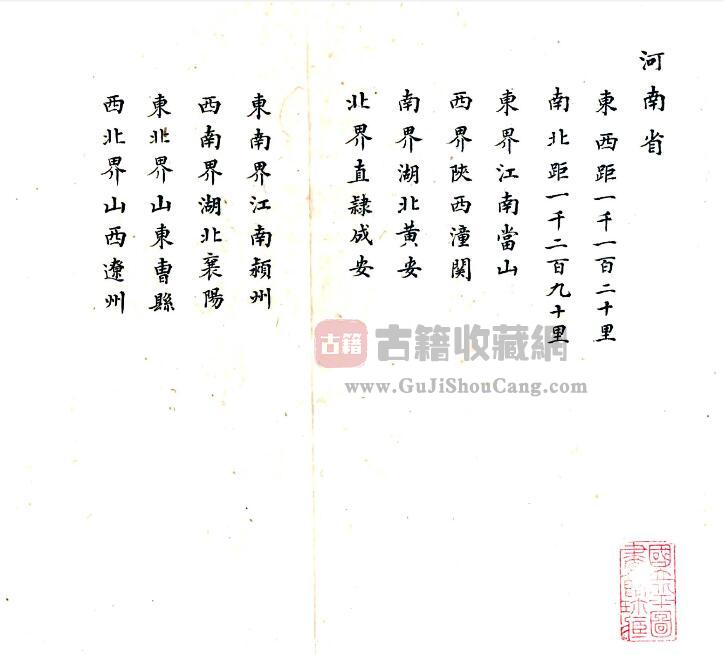 河南省
東西距一千一百二十里
南北距一千二百九十里
東界江南當山
西界陝西潼関
南界湖北黄安
北界直隸成安
東南界江南頴州
西南界湖北襄陽
東北界山東曹縣
西北界山西遼州
古籍
古籍收藏網
www.GuJiShouCang.com